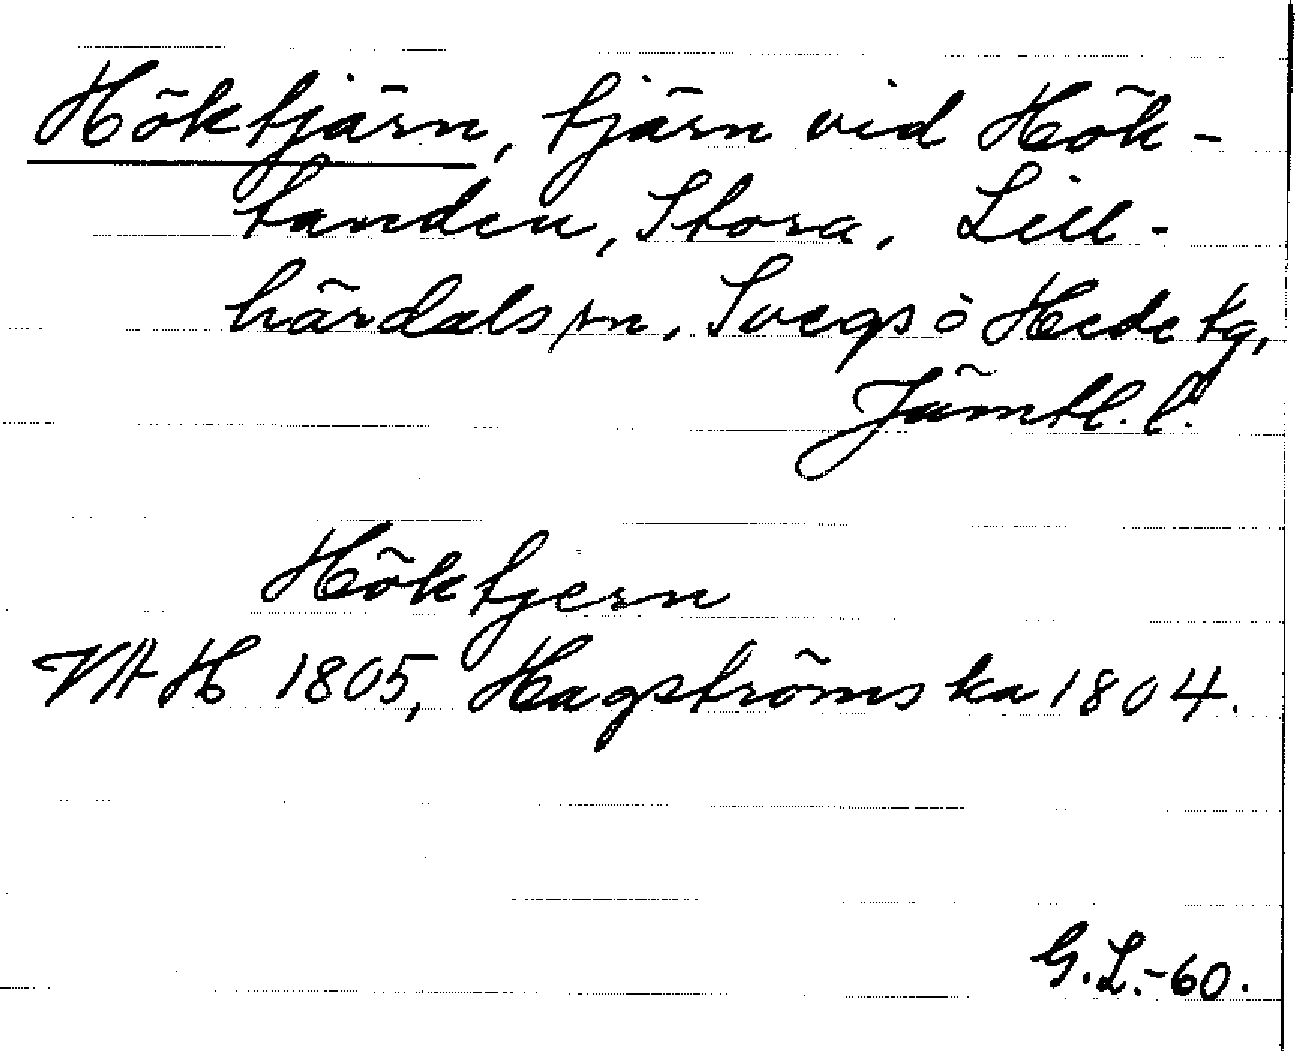 Höktjärn, tjärn vid Hök-
tanden, Stora, Lill-
härdals sn, Svegs o Hede tg,
Jämtl. l.
Höktjern
H 1805, Hagströms ka 1804.
G.L.-60.